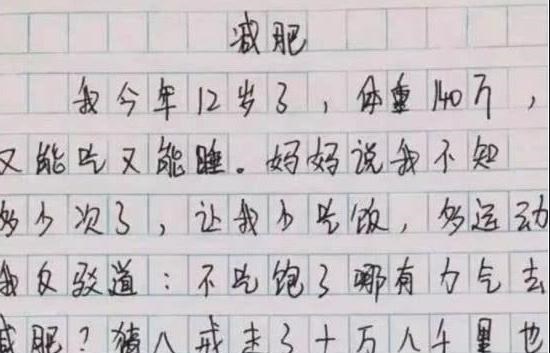 减肥
我今年12岁了，体重140斤，
又能吃又能睡。妈妈说我不知
多少次了，让我少吃饭，多运动
我反驳道：不吃饱了哪有力气去
减肥？猪八戒走了十万八千里也